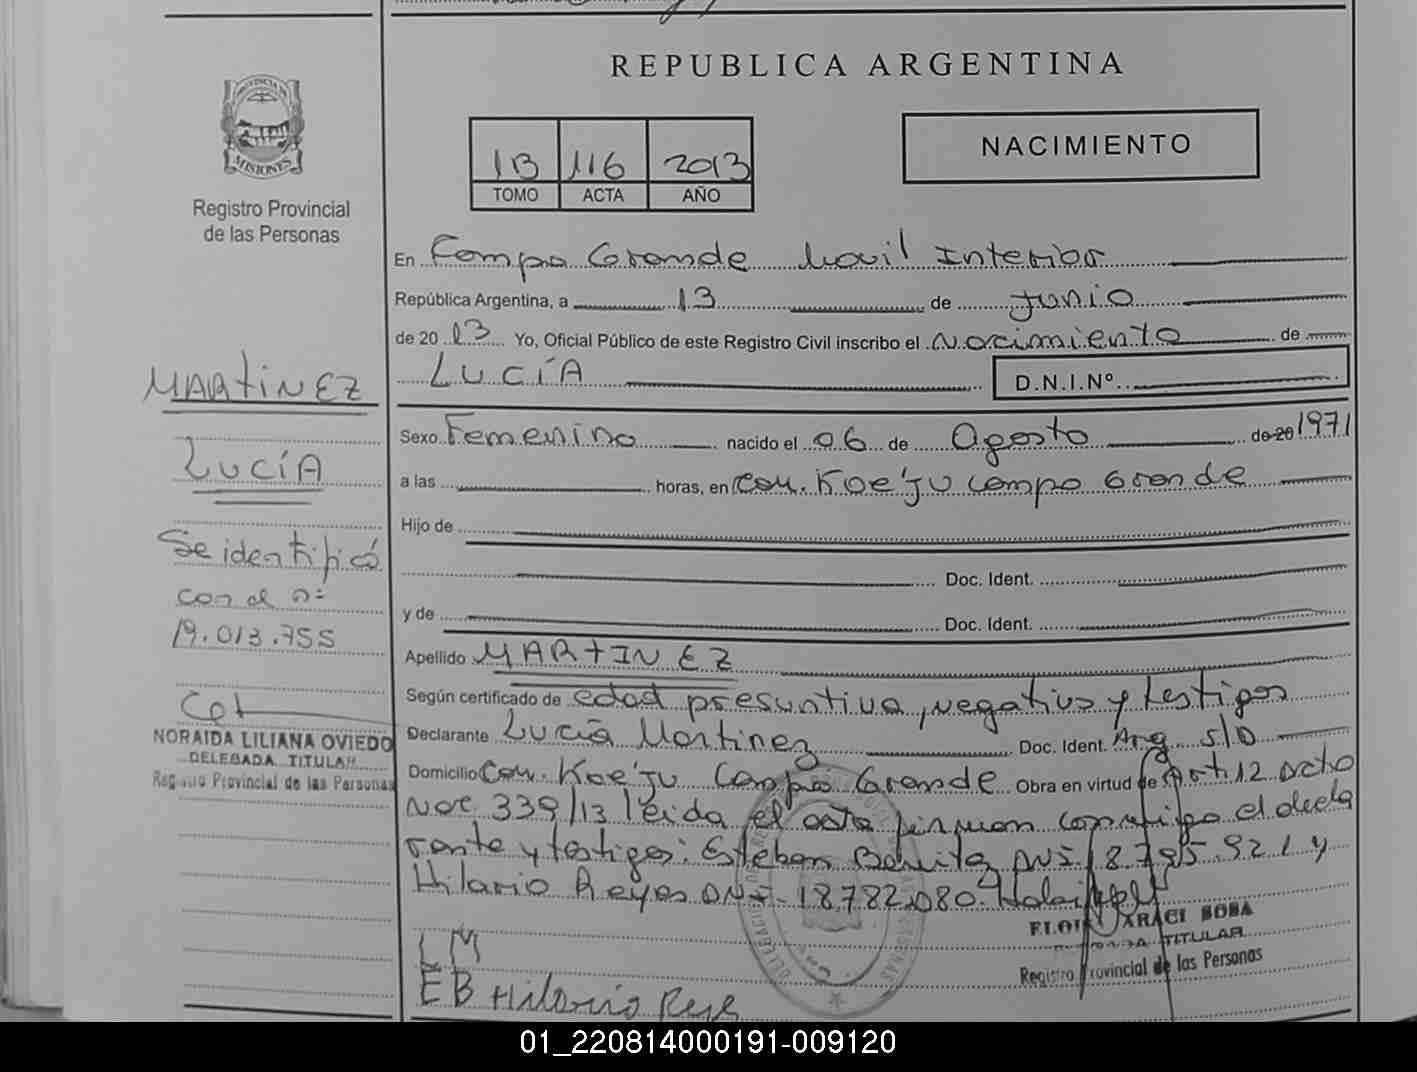 REPUBLICA ARGENTINA
PROVINCIA DE
MISIONES
Registro Provincial
de las Personas
1B 116 2013
TOMO ACTA AÑO
NACIMIENTO
En Campo Grande Movil Interior
República Argentina, a 13 de Junio
de 2013 Yo, Oficial Público de este Registro Civil inscribo el Nacimiento de
LUCÍA D.N.I.Nº
MARTINEZ
LUCÍA
Se identificó
con el nº
19.013.755
NORAIDA LILIANA OVIEDO
DELEGADA TITULAR
Registro Provincial de las Personas
Sexo Femenino nacido el 06 de Agosto de 20 1971
a las horas, en Com. Koe'ju Campo Grande
Hijo de
Doc. Ident.
y de Doc. Ident.
Apellido MARTINEZ
Según certificado de edad presuntiva, negativo y testigos
Declarante Lucía Martinez Doc. Ident. Arg. S/D
Domicilio Com. Koe'ju Campo Grande Obra en virtud de Art. 12 Dcto
Nro. 339/13 leida el acta firman conmigo el decla
rante y testigos: Esteban Benitez DNI 18.795.921 y
Hilario Reyes DNI- 18.782.080.
SOSA
TITULAR
Registro Provincial de las Personas
LM
EB Hilario Reye
01_220814000191-009120